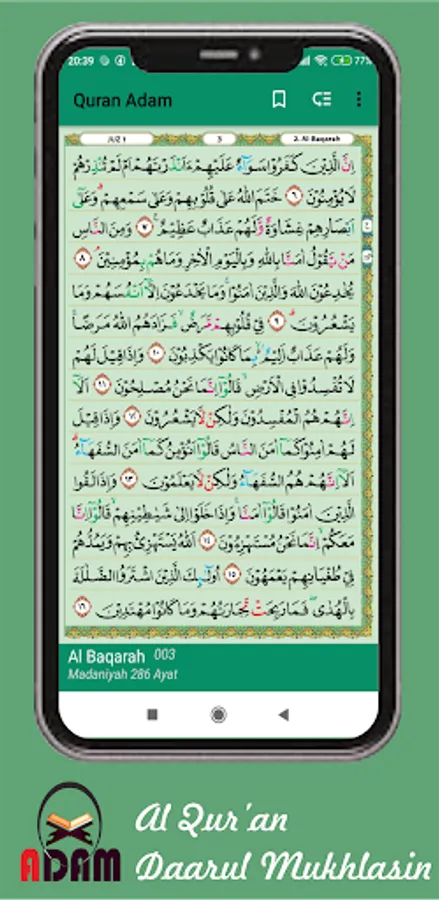 20:39 77%
Quran Adam
JUZ 1 3 2. Al Baqarah
اِنَّ الَّذِيْنَ كَفَرُوْا سَوَاۤءٌ عَلَيْهِمْ ءَاَنْذَرْتَهُمْ اَمْ لَمْ تُنْذِرْهُمْ
لَا يُؤْمِنُوْنَ ٦ خَتَمَ اللّٰهُ عَلٰى قُلُوْبِهِمْ وَعَلٰى سَمْعِهِمْ ۗ وَعَلٰٓى
اَبْصَارِهِمْ غِشَاوَةٌ وَّلَهُمْ عَذَابٌ عَظِيْمٌ ࣖ ٧ وَمِنَ النَّاسِ
مَنْ يَّقُوْلُ اٰمَنَّا بِاللّٰهِ وَبِالْيَوْمِ الْاٰخِرِ وَمَا هُمْ بِمُؤْمِنِيْنَ ۘ ٨
يُخٰدِعُوْنَ اللّٰهَ وَالَّذِيْنَ اٰمَنُوْا ۚ وَمَا يَخْدَعُوْنَ اِلَّآ اَنْفُسَهُمْ وَمَا
يَشْعُرُوْنَ ۗ ٩ فِيْ قُلُوْبِهِمْ مَّرَضٌ ۙ فَزَادَهُمُ اللّٰهُ مَرَضًا ۚ
وَلَهُمْ عَذَابٌ اَلِيْمٌ ۢ بِمَا كَانُوْا يَكْذِبُوْنَ ١٠ وَاِذَا قِيْلَ لَهُمْ
لَا تُفْسِدُوْا فِى الْاَرْضِ ۙ قَالُوْٓا اِنَّمَا نَحْنُ مُصْلِحُوْنَ ١١ اَلَآ
اِنَّهُمْ هُمُ الْمُفْسِدُوْنَ وَلٰكِنْ لَّا يَشْعُرُوْنَ ١٢ وَاِذَا قِيْلَ
لَهُمْ اٰمِنُوْا كَمَآ اٰمَنَ النَّاسُ قَالُوْٓا اَنُؤْمِنُ كَمَآ اٰمَنَ السُّفَهَاۤءُ ۗ
اَلَآ اِنَّهُمْ هُمُ السُّفَهَاۤءُ وَلٰكِنْ لَّا يَعْلَمُوْنَ ١٣ وَاِذَا لَقُوا
الَّذِيْنَ اٰمَنُوْا قَالُوْٓا اٰمَنَّا ۚ وَاِذَا خَلَوْا اِلٰى شَيٰطِيْنِهِمْ ۙ قَالُوْٓا اِنَّا
مَعَكُمْ ۙ اِنَّمَا نَحْنُ مُسْتَهْزِءُوْنَ ١٤ اَللّٰهُ يَسْتَهْزِئُ بِهِمْ وَيَمُدُّهُمْ
فِيْ طُغْيَانِهِمْ يَعْمَهُوْنَ ١٥ اُولٰۤىِٕكَ الَّذِيْنَ اشْتَرَوُا الضَّلٰلَةَ
بِالْهُدٰى ۖ فَمَا رَبِحَتْ تِّجَارَتُهُمْ وَمَا كَانُوْا مُهْتَدِيْنَ ١٦
Al Baqarah 003
Madaniyah 286 Ayat
ADAM
Al Qur'an
Daarul Mukhlasin